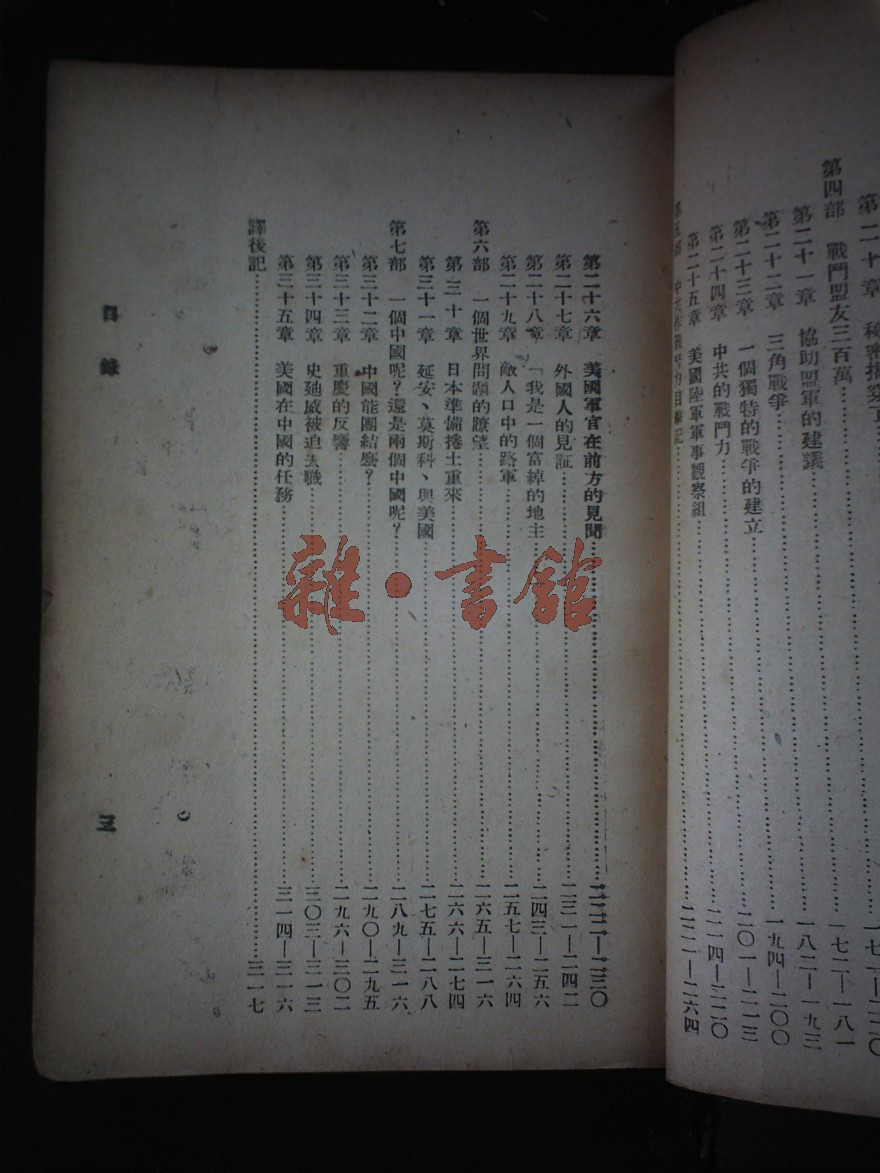 第二十章 秘密揭穿了
第四部 戰鬥盟友三百萬…一七二—一八一
第二十一章 協助盟軍的建議…一八二—一九三
第二十二章 三角戰爭…一九四—二〇〇
第二十三章 一個獨特的戰爭的建立…二〇一—二一三
第二十四章 中共的戰鬥力…二一四—二二〇
第二十五章 美國陸軍軍事觀察組
第五部 中共作戰努力目擊記…二二一—二六四
第二十六章 美國軍官在前方的見聞…二二二—二三〇
第二十七章 外國人的見証…二三一—二四二
第二十八章 「我是一個富綽的地主…二四三—二五六
第二十九章 敵人口中的路軍…二五七—二六四
第六部 一個世界問題的瞭望…二六五—三一六
第三十章 日本準備捲土重來…二六六—二七四
第三十一章 延安、莫斯科、與美國…二七五—二八八
第七部 一個中國呢？還是兩個中國呢？…二八九—三一六
第三十二章 中國能團結麼？…二九〇—二九五
第三十三章 重慶的反響…二九六—三〇二
第三十四章 史廸威被迫去職…三〇三—三一三
第三十五章 美國在中國的任務…三一四—三一六
譯後記…三一七
目錄
三
雜·書館